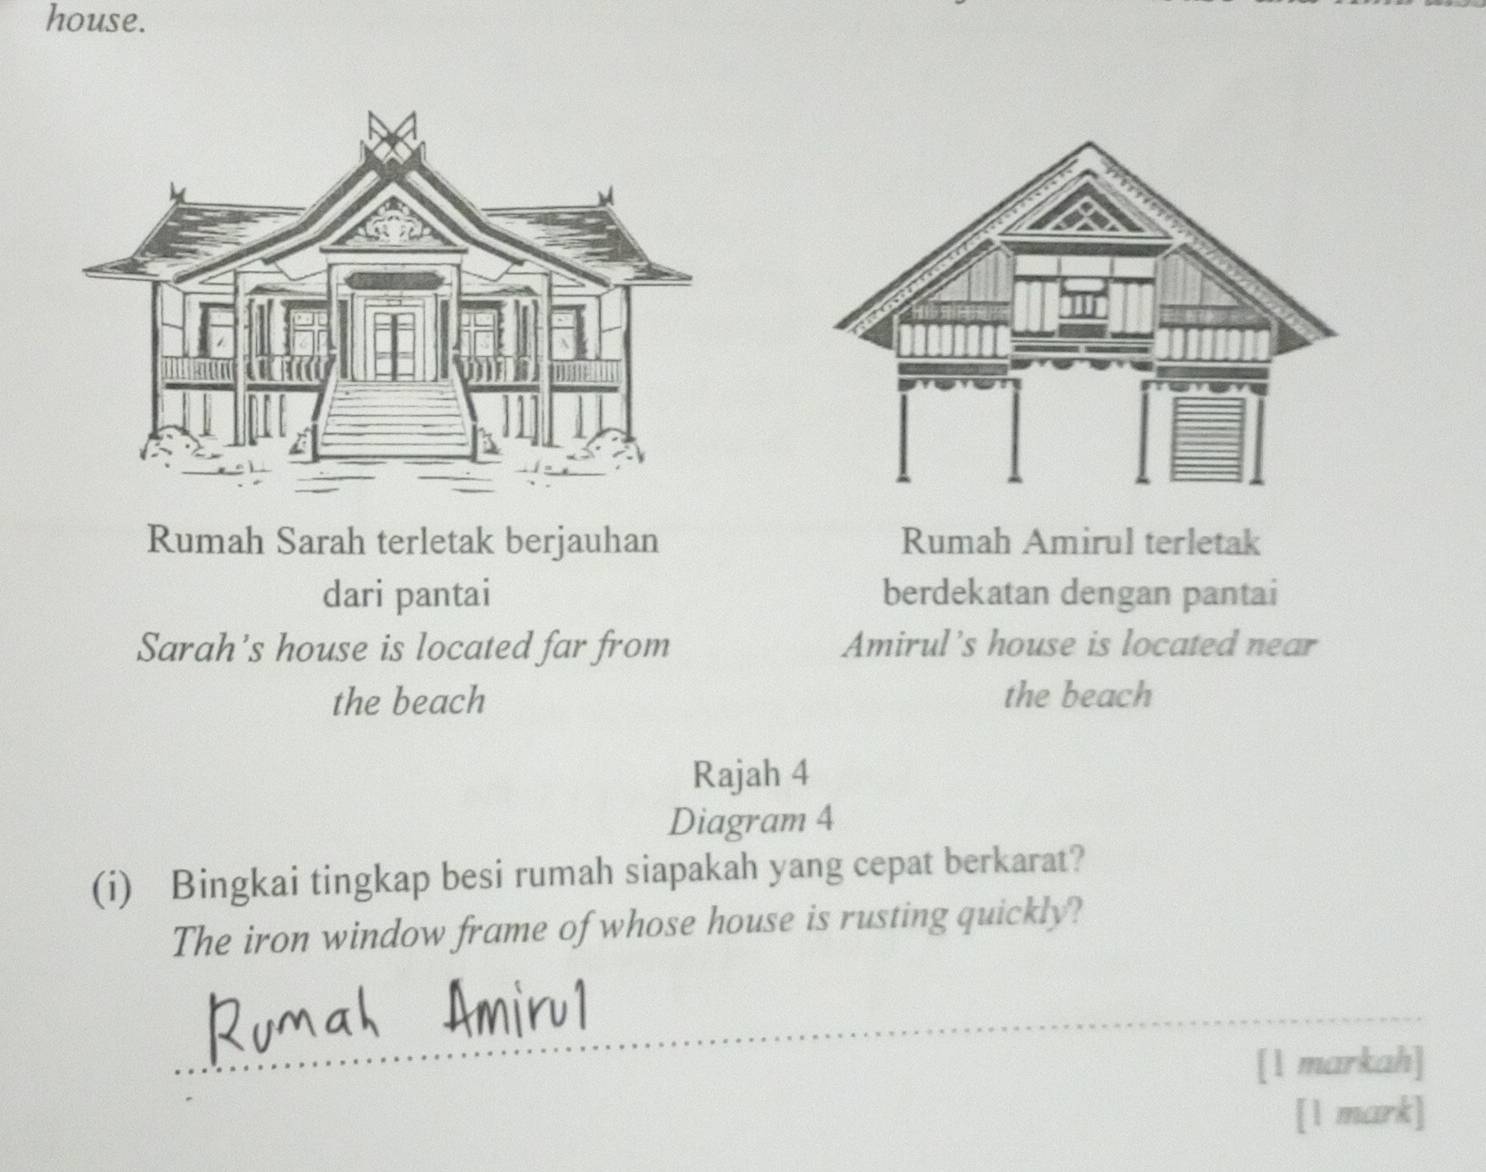 house.
Rumah Sarah terletak berjauhan
dari pantai
Sarah's house is located far from
the beach
Rumah Amirul terletak
berdekatan dengan pantai
Amirul's house is located near
the beach
Rajah 4
Diagram 4
(i) Bingkai tingkap besi rumah siapakah yang cepat berkarat?
The iron window frame of whose house is rusting quickly?
Rumah Amirul
[1 markah]
[1 mark]